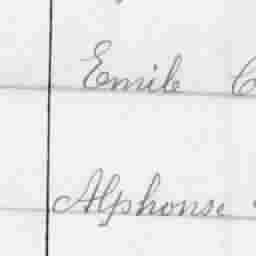 Emile
Alphonse